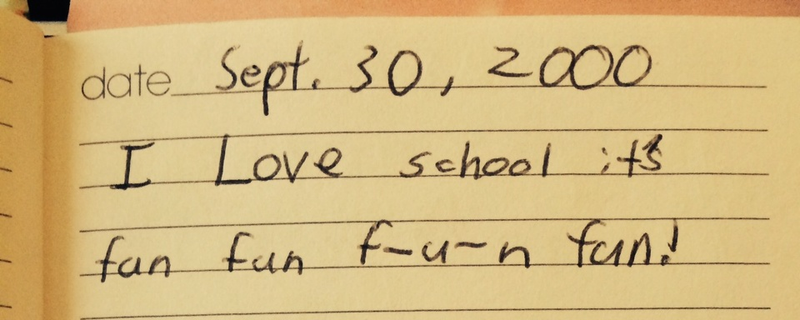 date Sept. 30, 2000
I Love school it's
fun fun f-u-n fun!